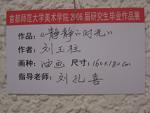 首都师范大学美术学院2006届研究生毕业作品展
作品:《静静的时光》
作者: 刘玉柱
画种: 油画 尺寸: 160×180cm
指导老师: 刘孔喜